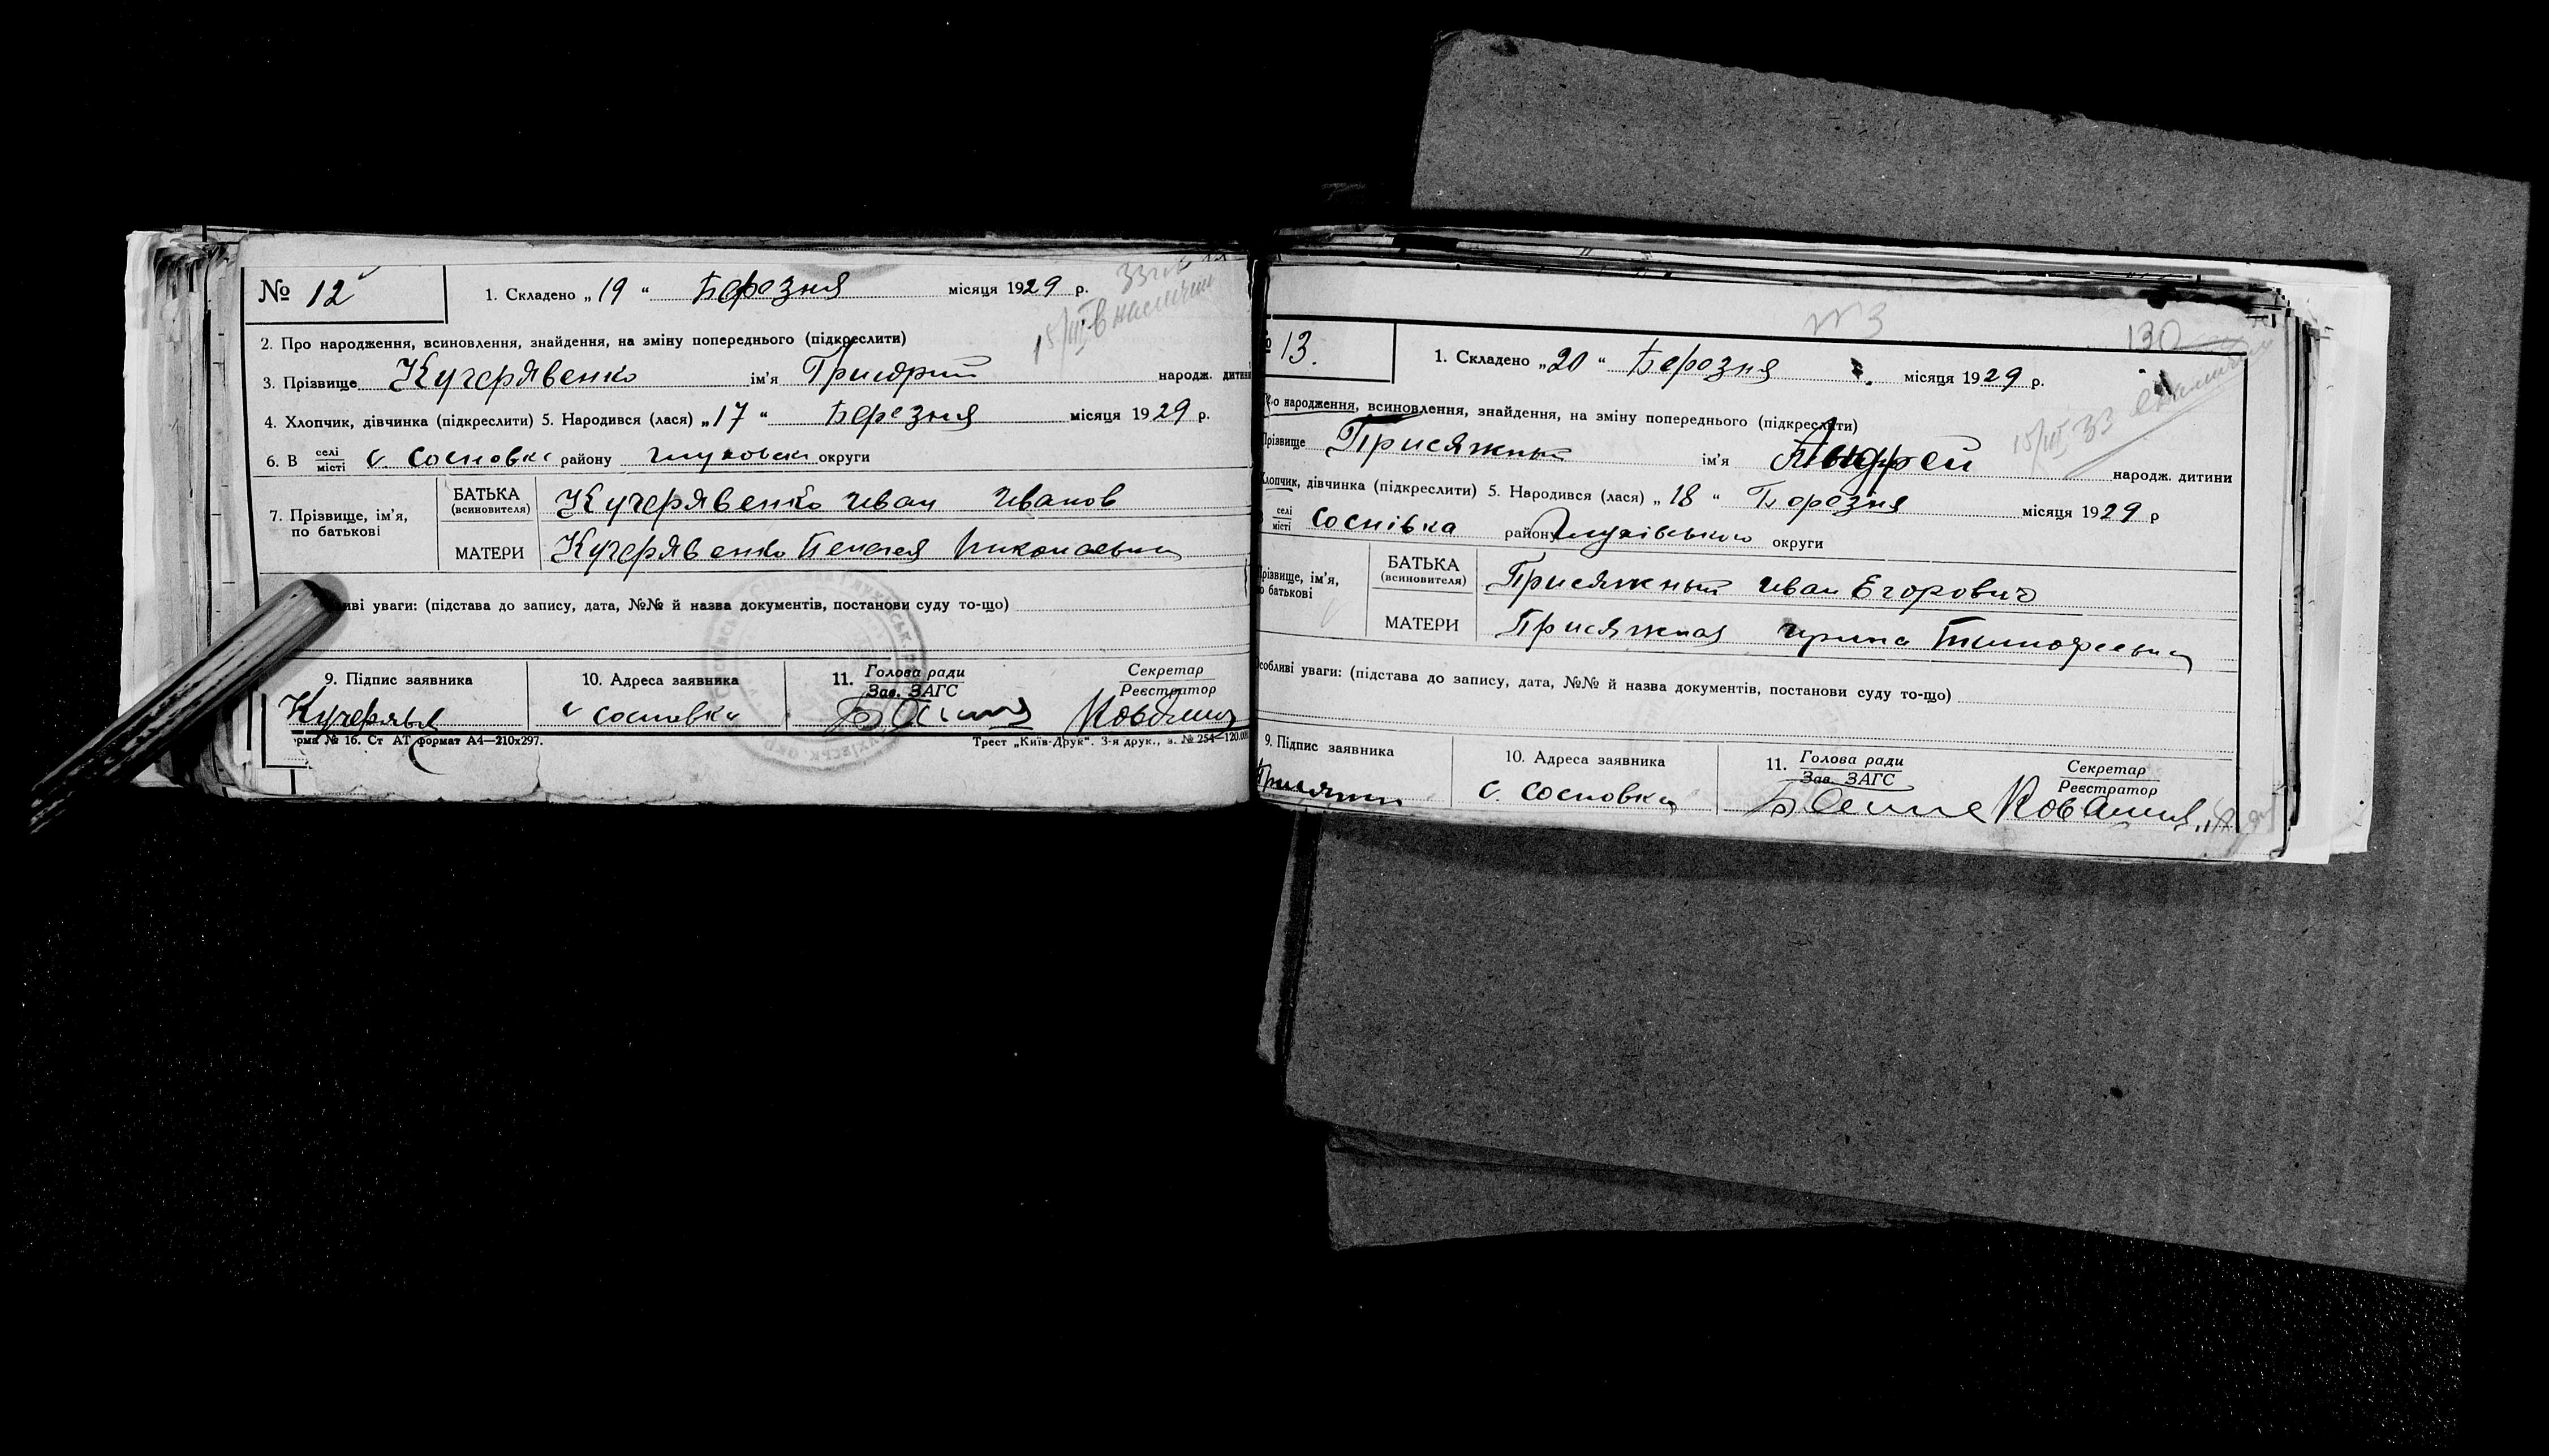 № 12
1. Складено „19“ Березня місяця 1929 р.
2. Про народження, всиновлення, знайдення, на зміну попереднього (підкреслити)
3. Прізвище Кучерявенко ім'я Григорий народж. дитини
4. Хлопчик, дівчинка (підкреслити) 5. Народився (лася) „17“ Березня місяця 1929 р.
6. В селі/місті с. Сосновке району глуховськ округи
7. Прізвище, ім'я, по батькові
БАТЬКА (всиновителя) Кучерявенко Иван Иванов
МАТЕРИ Кучерявенко Пелагея Николаевна
иві уваги: (підстава до запису, дата, №№ й назва документів, постанови суду то-що)
9. Підпис заявника 10. Адреса заявника 11. Голова ради / Зав. ЗАГС Секретар / Реєстратор
с Сосновка
рма № 16. Ст АТ формат А4—210х297. Трест „Київ-Друк“. 3-я друк., з. № 254—120.00
130
13.
1. Складено „20“ Березня місяця 1929 р.
о народження, всиновлення, знайдення, на зміну попереднього (підкреслити)
Прізвище Присяжный ім'я Андрей народж. дитини
Хлопчик, дівчинка (підкреслити) 5. Народився (лася) „18“ Березня місяця 1929 р
селі/місті Соснівка району Глухівського округи
Прізвище, ім'я, по батькові
БАТЬКА (всиновителя) Присяжный Иван Егорович
МАТЕРИ Присяжная Ирина Тимофеевна
Особливі уваги: (підстава до запису, дата, №№ й назва документів, постанови суду то-що)
9. Підпис заявника 10. Адреса заявника 11. Голова ради / Зав. ЗАГС Секретар / Реєстратор
с. Сосновка